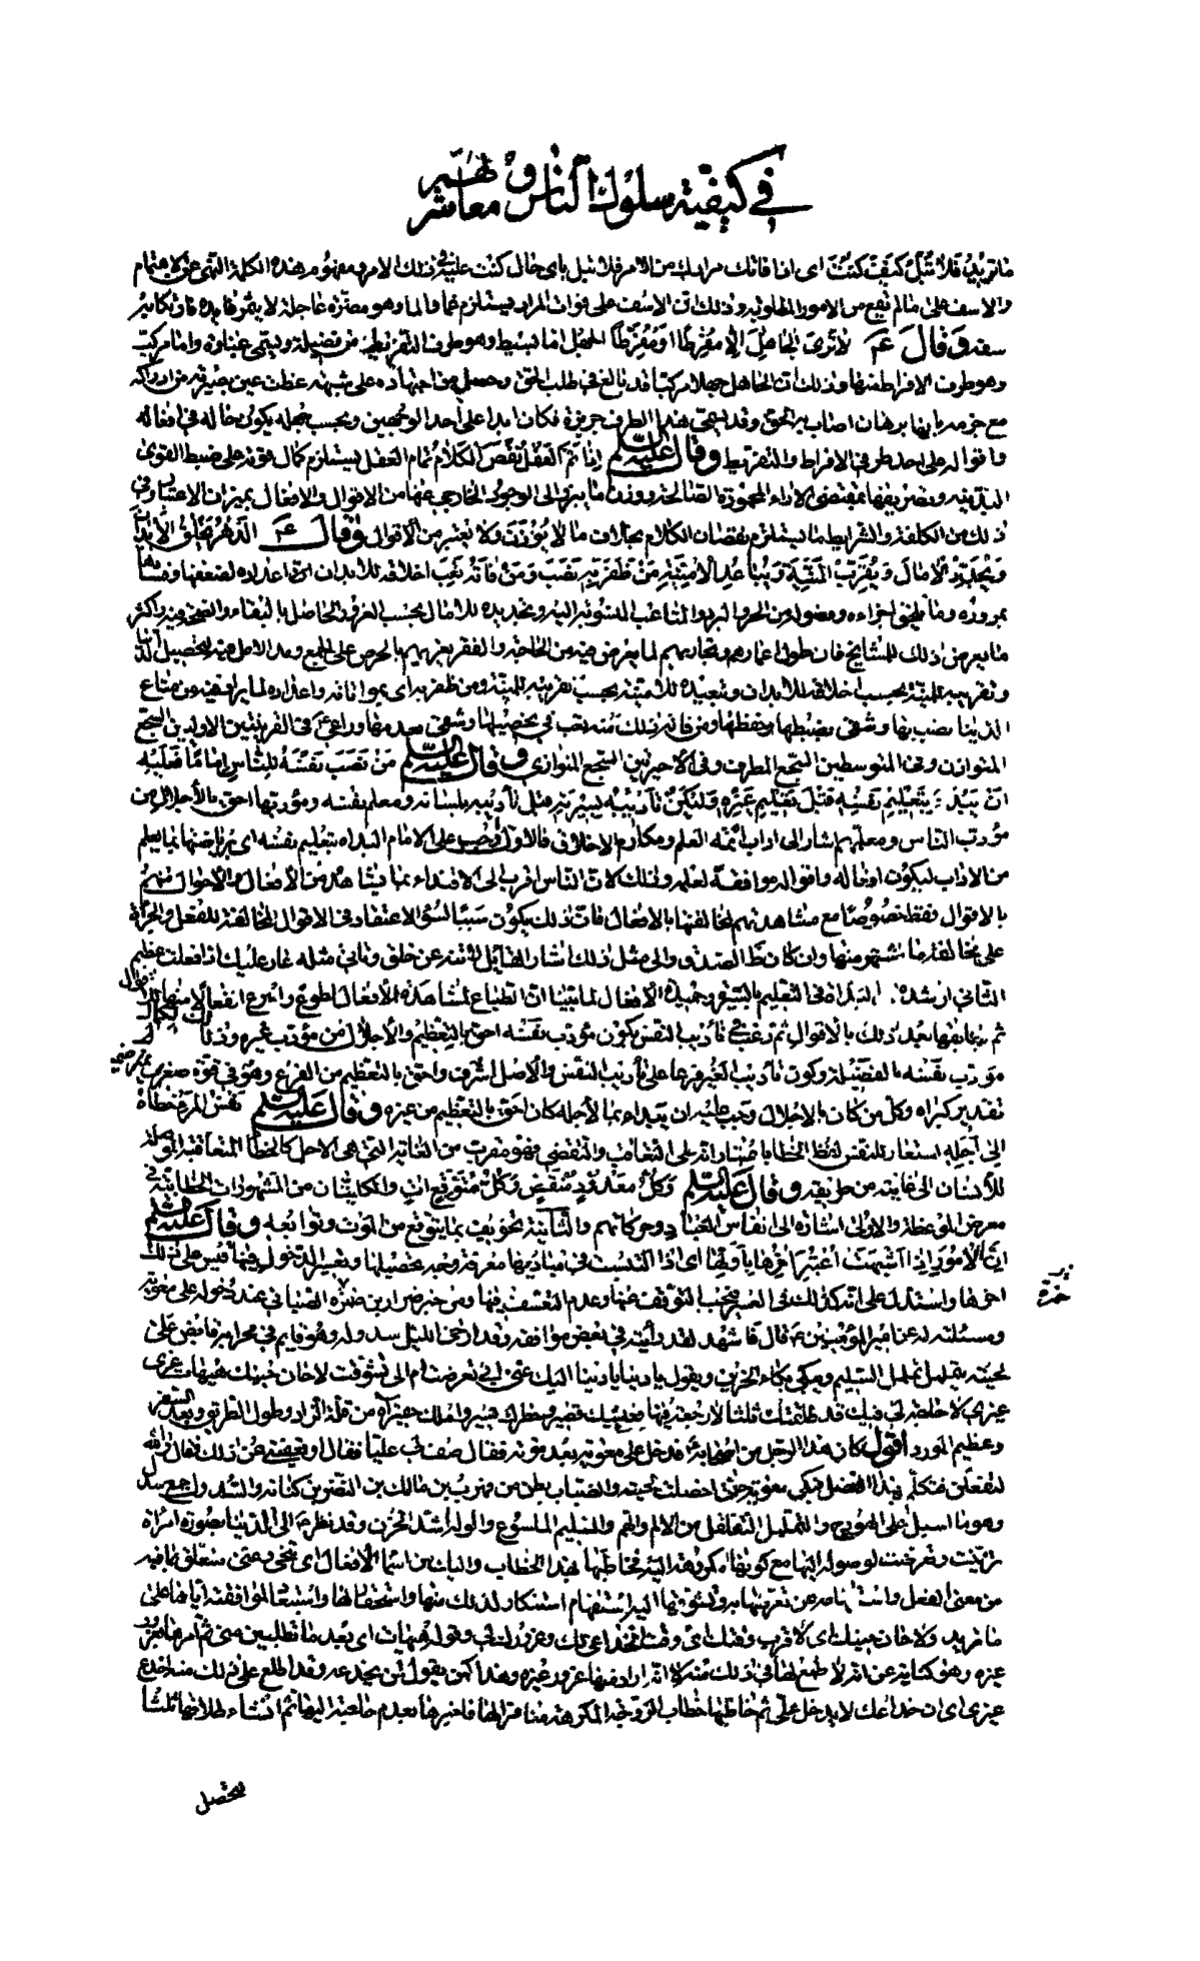 في كيفية سلوك الناس و معاشرتهم
ما تريد فلا تبل كيف كنت اى اذا فاتك مرادك من الامر فلا تبل باى حال كنت عليه في ذلك الامر ومفهوم هذه الكلمة النهى عن الاهتمام
والاسف على ما لم ينجح من الامور المطلوبة وذلك ان الاسف على فوات المراد يستلزم غما والما وهو مضرة عاجلة لا يثمر فايدة
وقال ع لا ترى الجاهل الا مفرطا او مفرطا الجهل اما بسيط وهو طرف التفريط من فضيلة ويسمى غباوة واما مركب
وهو طرف الافراط منها وذلك ان الجاهل جهلا مركبا قد بالغ في طلب الحق وحصل من اجتهاده على شبهة غطت عين بصيرته من ادراكه
مع جزمه بانها برهان اصاب به الحق وقد يسمى هذا الطرف جربزة فكان ابدا على احد الوجهين وبحسب جهله يكون حاله في افعاله
واقواله على احد طرفي الافراط والتفريط وقال عليه السلم اذا تم العقل نقص الكلام تمام العقل يستلزم كمال قوته على ضبط القوى
البدنية وتصريفها بمقتضى الاراء المحمودة الصالحة ووزن ما يبرز الى الوجود الخارجى عنها من الاقوال والافعال بميزان الاعتبار وفى
ذلك من الكلفة والشرايط ما يستلزم نقصان الكلام بخلاف ما لا يوزن ولا يعتبر من الاقوال وقال ع الدهر يخلق الابدان
ويجدد الامال ويقرب المنية ويباعد الامنية من ظفر به نصب ومن فاته تعب اخلاقه للابدان اى اعداده لضعفها وفسادها
بمروره وما يلحق اجزاءه وفصوله من الحر والبرد والمتاعب المنسوبة اليه وتجديده للامال بحسب الغرور الحاصل بالبقاء والصحة فيه واكثر
ما يعرض ذلك للمشايخ فان طول اعمارهم وتجاربهم لما يعرض فيه من الحاجة والفقر يغريهم بالحرص على الجمع ومد الامل فيه لتحصيل الدنيا
وتقريبه للمنية بحسب اخلاقه للابدان وتبعيده للامنية بحسب تقريبه للمنية ومن ظفر به اى بمواتاته واعداده لما يراد فيه من متاع
الدنيا نصب بها وشقى بضبطها وحفظها ومن فاته ذلك منه تعب في تحصيلها وشقى بعدمها وراعى ع فى القرينتين الاوليين السجع
المتوازن وفى المتوسطين السجع المطرف وفى الاخيرتين السجع المتوازى وقال عليه السلم من نصب نفسه للناس اماما فعليه
ان يبدء بتعليم نفسه قبل تعليم غيره وليكن تاديبه بسيرته قبل تاديبه بلسانه ومعلم نفسه ومؤدبها احق بالاجلال من
مؤدب الناس ومعلمهم اشار الى اداب ائمة العلم ومكارم الاخلاق فالاول وجب على الامام البداء بتعليم نفسه اى برياضتها بما يعلم
من الاداب ليكون افعاله واقواله موافقة لعلمه وذلك لان الناس اقرب الى الاقتداء بما يشاهد من الافعال والاحوال منهم
بالاقوال فقط خصوصا مع مشاهدتهم لمخالفتها بالافعال فان ذلك يكون سببا لسوء الاعتقاد فى الاقوال المخالفة للفعل والجرأة
على مخالفة ما شهر منها وان كان ظ الصدق والى مثل ذلك اشار القائل لا تنه عن خلق وتاتى مثله عار عليك اذا فعلت عظيم
الثانى ارشده البداة فى التعليم بالسيرة وحميدة الافعال لما بينا ان الطباع لمشاهدة الافعال اطوع واسرع انفعالا منها للاقوال
ثم يتابعها بعد ذلك بالاقوال ثم رغب في تاديب النفس بكون مؤدب نفسه احق بالتعظيم والاجلال من مؤدب غيره وذلك لكمال
مؤدب نفسه بالفضيلة وكون تاديب الغير فرعا على تاديب النفس والاصل اشرف واحق بالتعظيم من الفرع وهو في قوة صغرى ضمير
تقدير كبراه وكل من كان بالاجلال وجب عليه ان يبداء بما لاجله كان احق بالتعظيم من غيره وقال عليه السلم نفس المرء خطاه
الى اجله استعار للنفس لفظ الخطا باعتبار انه على التعاقب والتقضى فهو مقرب من الغاية التى هى الاجل كالخطا المتعاقبة الموصلة
للانسان الى غايته من طريقه وقال عليه السلم وكل معدود منقض وكل متوقع ات والكليتان من المشهورات الخطابية في
معرض الموعظة والاولى اشارة الى انفاس العباد وحركاتهم والثانية تخويف بما يتوقع من الموت وتوابعه وقال عليه السلم
ان الامور اذا اشتبهت اعتبر اخرها باولها اى اذا التبست في مباديها معرفة وجه تحصيلها وتعسر الدخول فيها قيس على ذلك
اخرها واستدل على انه كذلك في العسر فيجب التوقف عنها وعدم التعسف فيها ومن خبر ضرار بن ضمرة الضبابي عند دخوله على معوية
ز بـ
حمزة
ومسئلته له عن امير المؤمنين ع قال فاشهد لقد رأيته في بعض مواقفه وقد ارخى الليل سدوله وهو قايم في محرابه قابض على
لحيته يتململ تململ السليم ويبكى بكاء الحزين ويقول يا دنيا يا دنيا اليك عنى ابى تعرضت ام الى تشوقت لا حان حينك هيهات غرى
غيرى لا حاجة لى فيك قد طلقتك ثلثا لا رجعة فيها فعيشك قصير وخطرك يسير واملك حقير آه من قلة الزاد وطول الطريق وبعد السفر
وعظيم المورد اقول كان هذا الرجل من اصحابه ع فدخل على معوية بعد موته فقال صف لى عليا فقال او تعفينى عن ذلك فقال والله
لتفعلن فتكلم بهذا الفصل فبكى معوية حتى اخضلت لحيته والضباب بطن من فهر بن مالك بن النضر بن كنانة والسدول جمع سدل
وهو ما اسبل على الهودج والتململ التقلقل من الالم والهم والسليم الملسوع والوله اشد الحزن وقد نظر ع الى الدنيا بصورة امرأة
تزينت وتعرضت لوصوله اليها مع كونها مكروهة اليه فخاطبها بهذا الخطاب واليك من اسماء الافعال اى تنحى وعنى متعلق بما فيه
من معنى الفعل واستفهامه عن تعرضها به وتشوقها اليه استفهام استنكار لذلك منها واستحقار لها واستبعاد لموافقته اياها على
ما تريد ولا حان حينك اى لا قرب وقتك اى وقت انخداعى لك وغرورك لى وقوله هيهات اى بعد ما تطلبين منى ثم امرها بغرور
غيره وهو كناية عن انه لا طمع لها في ذلك منه لا انه اراد منها غرور غيره وهذا كمن يقول لمن يخدعه وقد اطلع على ذلك منه اخدع
غيرى اى ان خداعك لا يدخل على ثم خاطبها خطاب الزوجة المكرهة منافرا لها فاخبرها بعدم حاجته اليها ثم انشاء طلاقها ثلثا
لتحصل